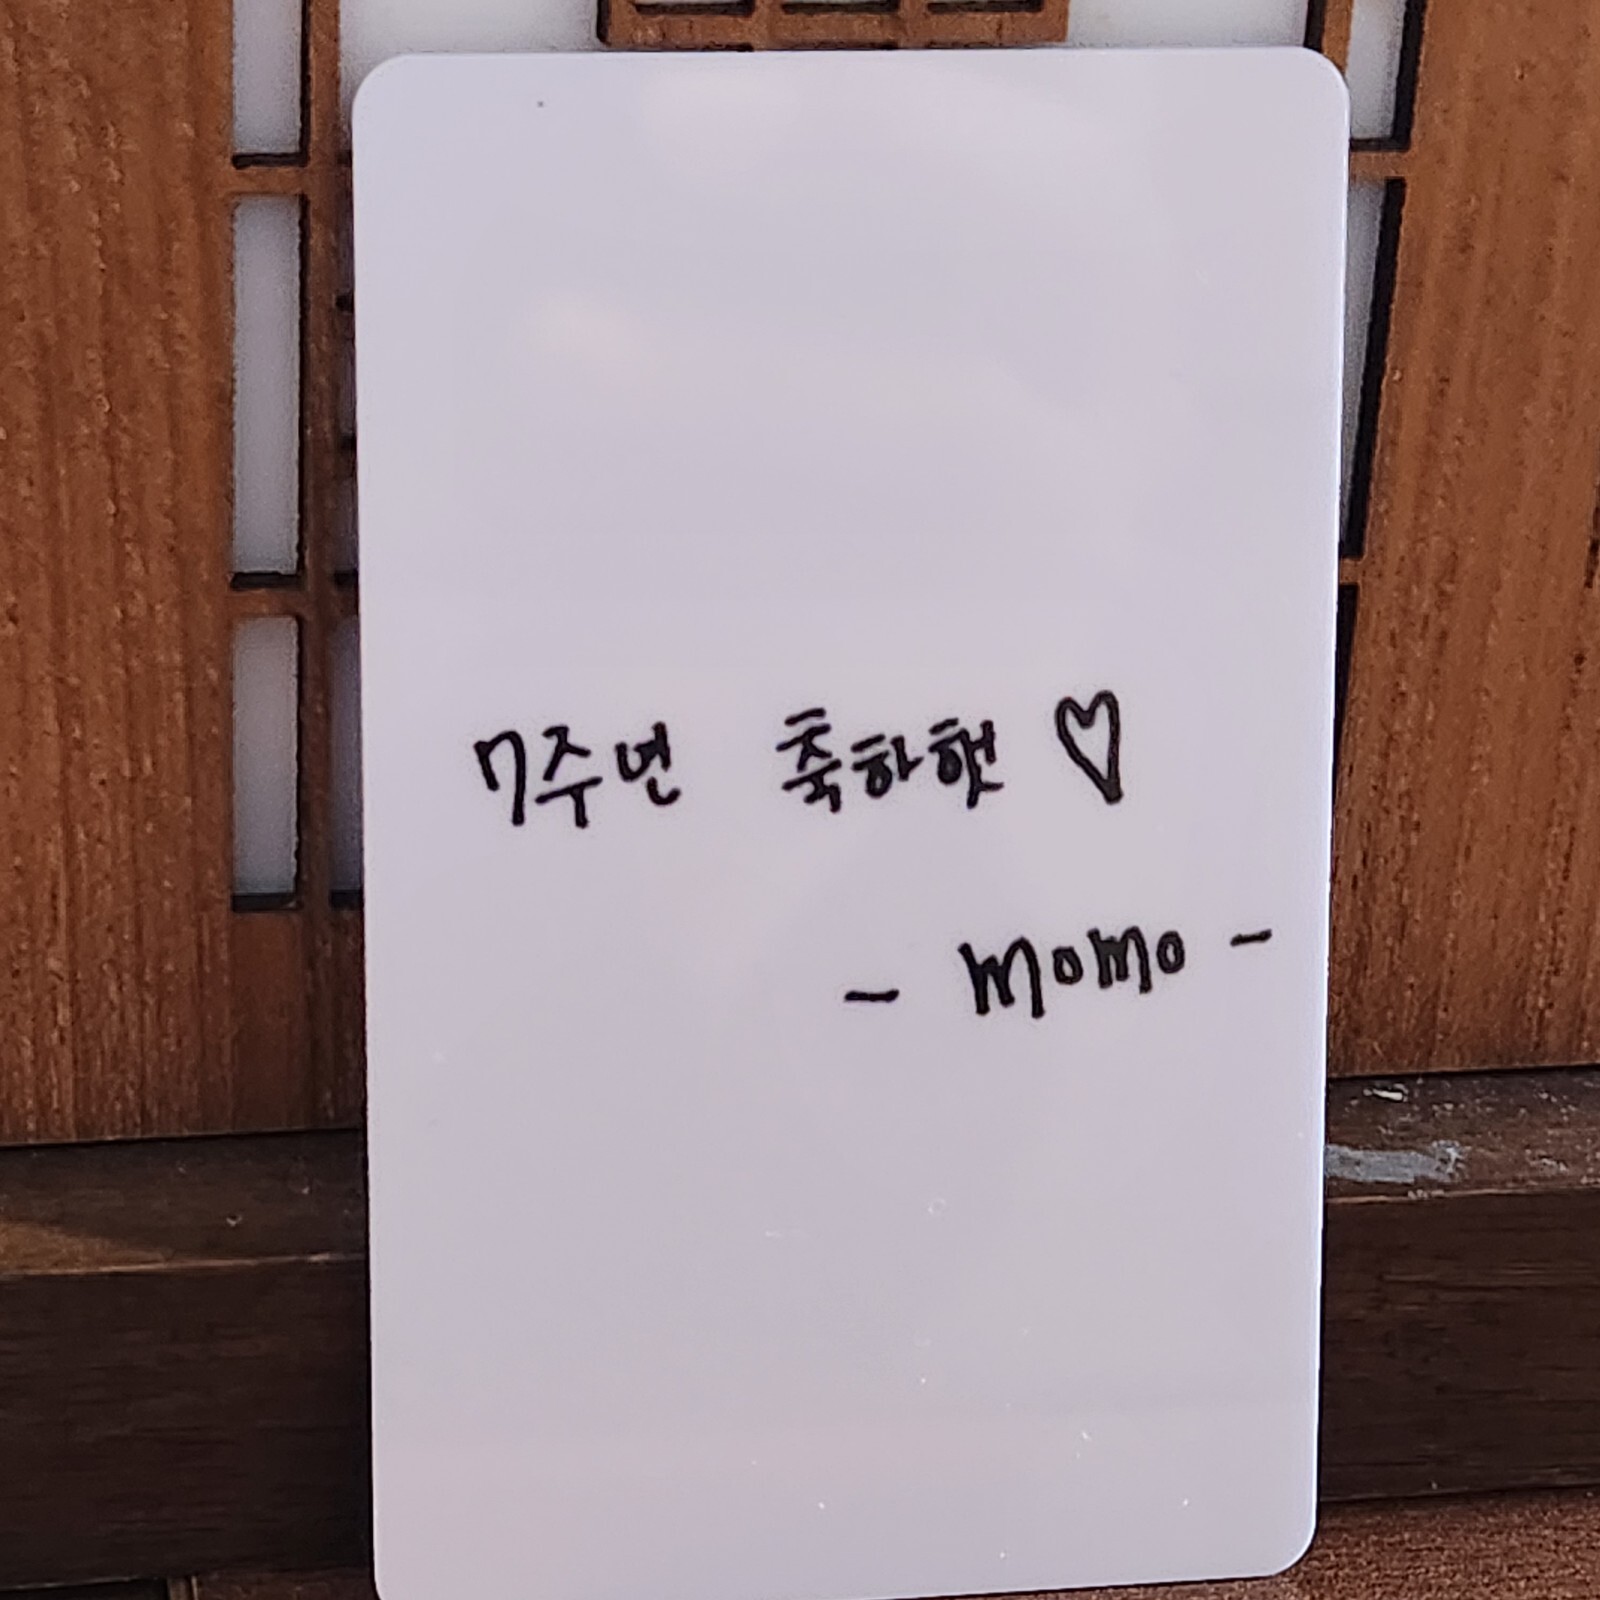 7주년 축하햇 ♡
- momo -